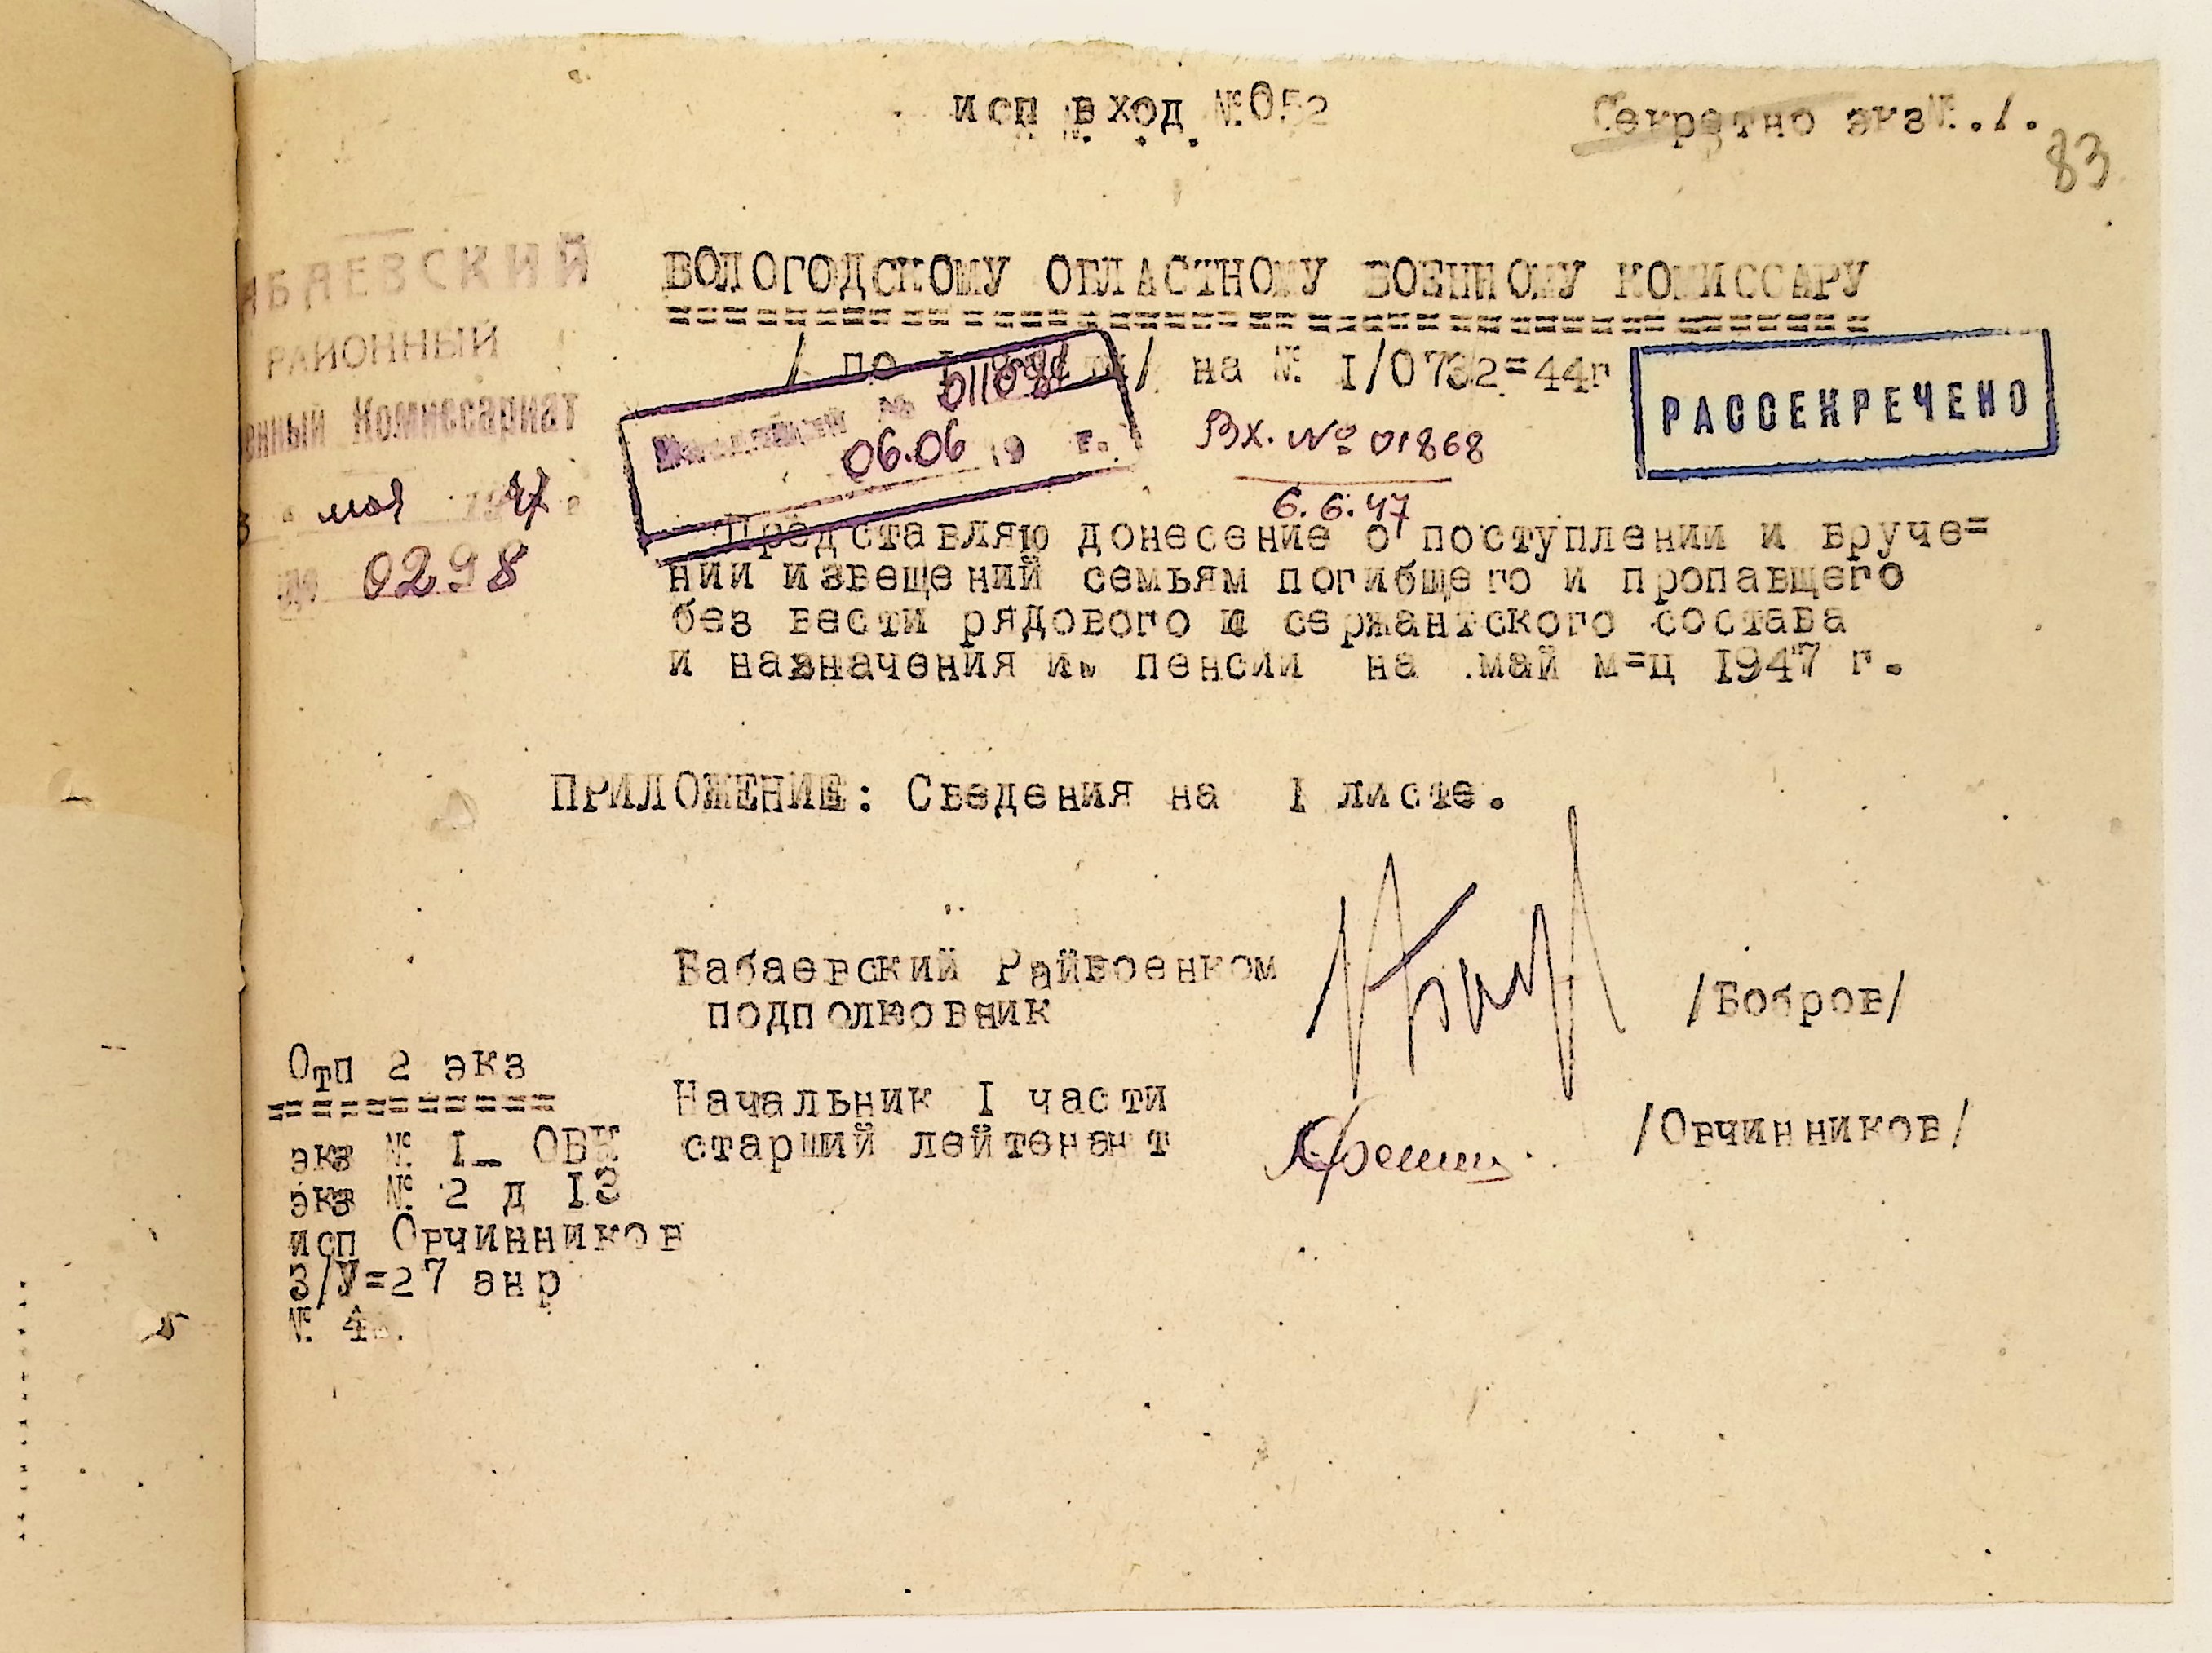 исп вход №052
Секретно экз№.1.
83
БАЕВСКИЙ
РАЙОННЫЙ
енный Комиссариат
мая 1947 г
№ 0298
ВОЛОГОДСКОМУ ОБЛАСТНОМУ ВОЕННОМУ КОМИССАРУ
=============================================
/ по I части/ на № I/0732=44г
06.06 19 г.
Вх. № 01868
6.6.47
РАССЕКРЕЧЕНО
Представляю донесение о поступлении и вруче=
нии извещений семьям погибщего и пропавщего
без вести рядового и сержантского состава
и назначения им пенсии на май м=ц 1947 г.
ПРИЛОЖЕНИЕ: Сведения на I листе.
Бабаевский Райвоенком
подполковник
/Бобров/
Начальник I части
старший лейтенант
/Овчинников/
Отп 2 экз
===========
экз № I_ ОВК
экз № 2 д I3
исп Овчинников
3/У=27 янр